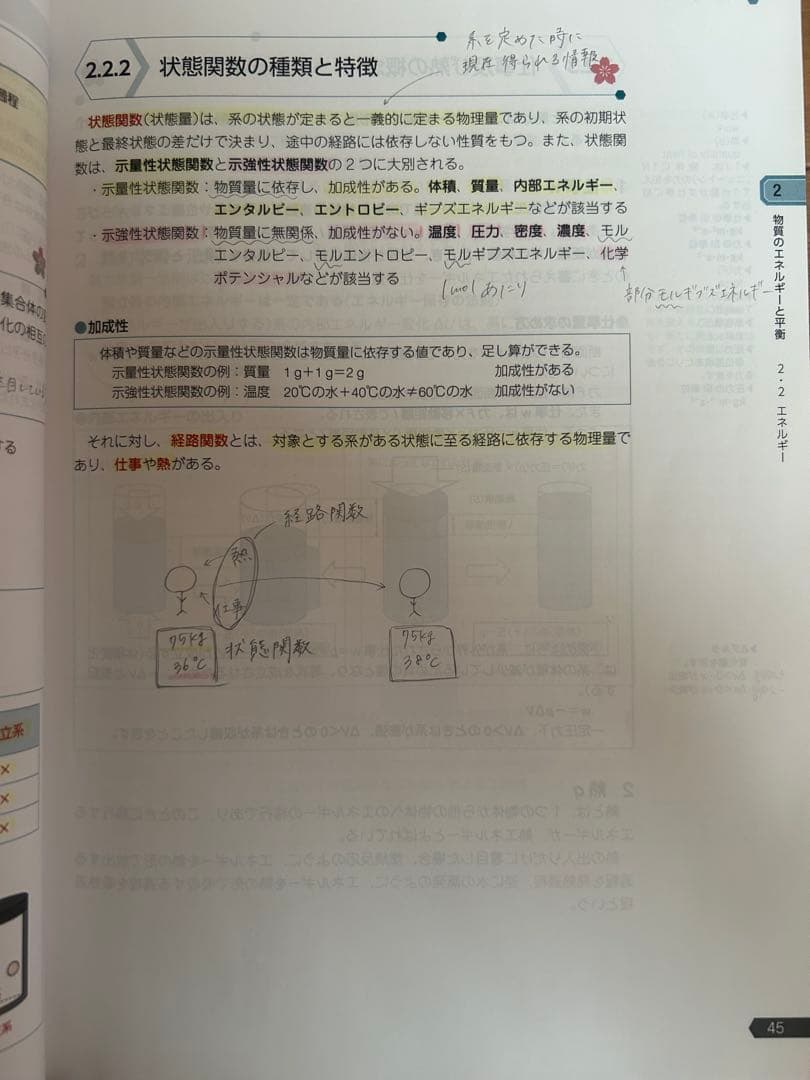 系を定めた時に
現在得られる情報
2.2.2 状態関数の種類と特徴
状態関数(状態量)は、系の状態が定まると一義的に定まる物理量であり、系の初期状
態と最終状態の差だけで決まり、途中の経路には依存しない性質をもつ。また、状態関
数は、示量性状態関数と示強性状態関数の2つに大別される。
・示量性状態関数：物質量に依存し、加成性がある。体積、質量、内部エネルギー、
エンタルピー、エントロピー、ギブズエネルギーなどが該当する
・示強性状態関数：物質量に無関係、加成性がない。温度、圧力、密度、濃度、モル
エンタルピー、モルエントロピー、モルギブズエネルギー、化学
ポテンシャルなどが該当する
1molあたり
部分モルギブズエネルギー
●加成性
体積や質量などの示量性状態関数は物質量に依存する値であり、足し算ができる。
示量性状態関数の例：質量 1g+1g=2g 加成性がある
示強性状態関数の例：温度 20℃の水+40℃の水≠60℃の水 加成性がない
それに対し、経路関数とは、対象とする系がある状態に至る経路に依存する物理量で
あり、仕事や熱がある。
経路関数
熱
仕事
75kg
36℃
状態関数
75kg
38℃
2
物質のエネルギーと平衡 2・2 エネルギー
45
過程
集合体の
化の相互
する
立系
×
×
×
系